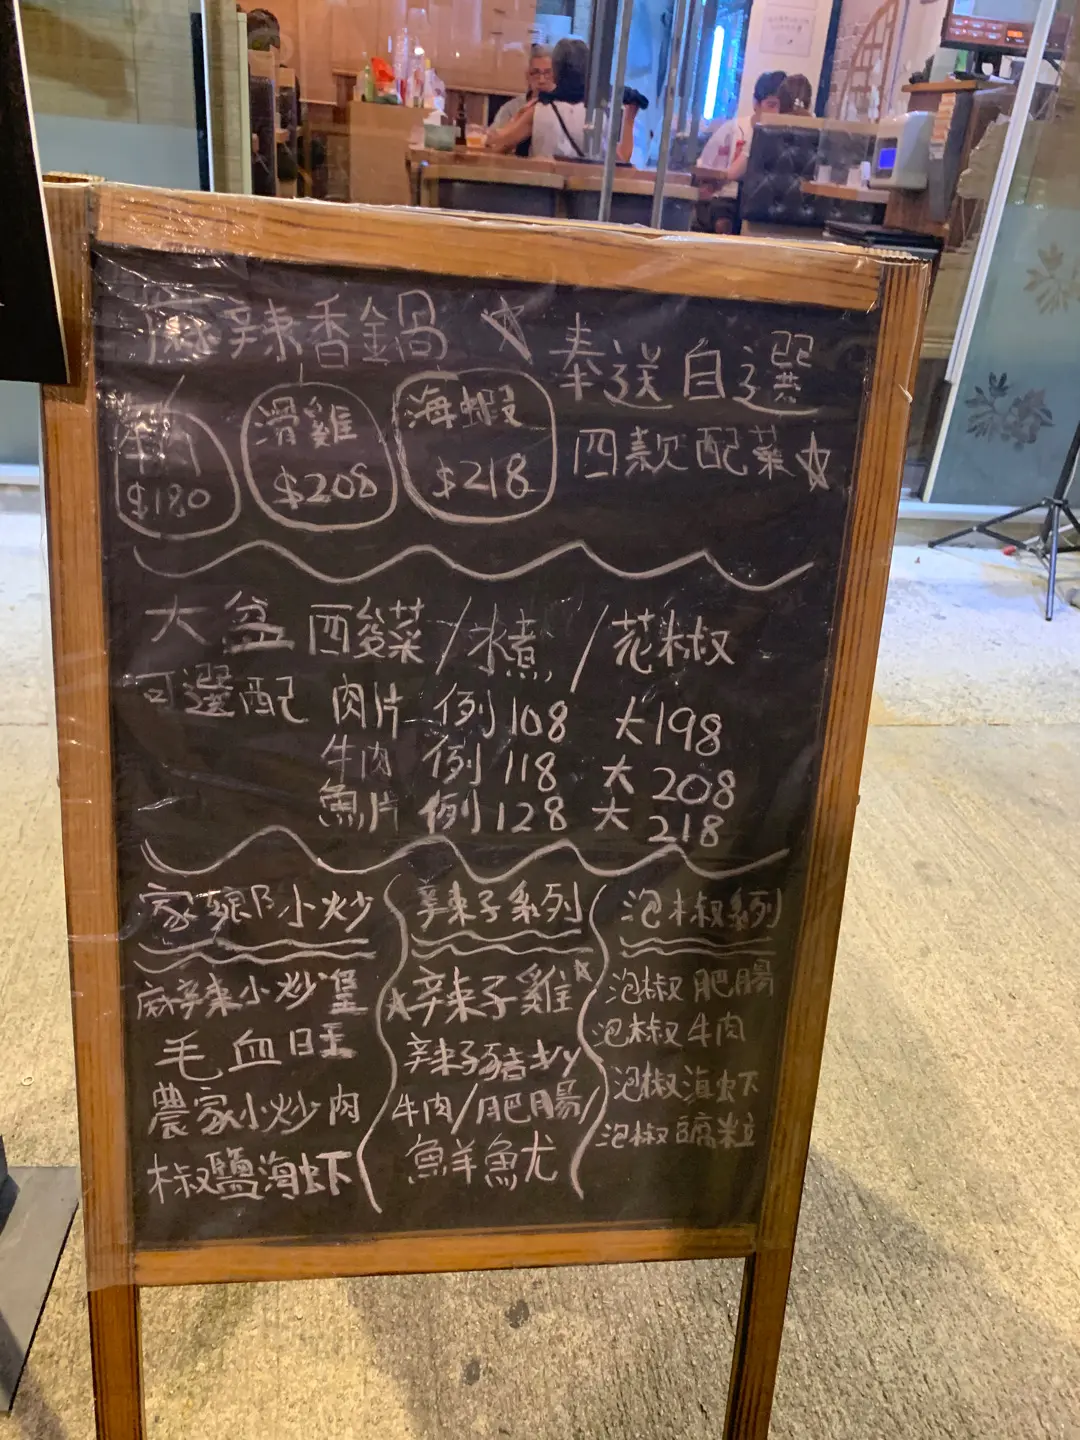 麻辣香鍋 奉送自選
滑雞 海蝦 四款配菜
$180 $208 $218
大盆 四酸菜/水煮/花椒
可選配 肉片 例108 大198
牛肉 例118 大208
魚片 例128 大218
家鄉小炒 辣子系列 泡椒系列
麻辣小炒皇 辣子雞 泡椒肥腸
毛血旺 辣子豬 泡椒牛肉
農家小炒肉 牛肉/肥腸/ 泡椒滇虾
椒鹽海虾 鮮魷 泡椒